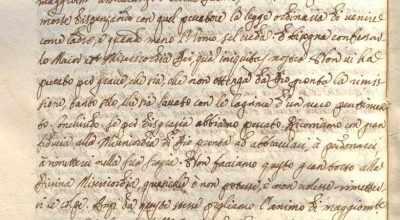 morte dispensando con quel peccatore la legge ordinaria di venire
come ladro, e quando meno l'Uomo sel vede. Bisogna confessar
la Maior est Misericordia Dei, quam iniquitas nostra. Non vi ha
peccato più grave, che sia, che non ottenga da Dio pronta la remis
sione, tanto più che sia lavato con le lagrime d'un vero pentimen
to. Concludo. Se per disgrazia abbiamo peccato. Ricorriamo con gran
fiducia alla Misericordia di Dio pronta ad abbracciarci, a perdonarci
a rimetterci nella sua grazia. Non facciamo questo gran torto alla
Divina Misericordia quasiché o non potesse, o non volesse rimetter
ci le colpe. Anzi da queste stesse pigliamo l'animo di maggiormte